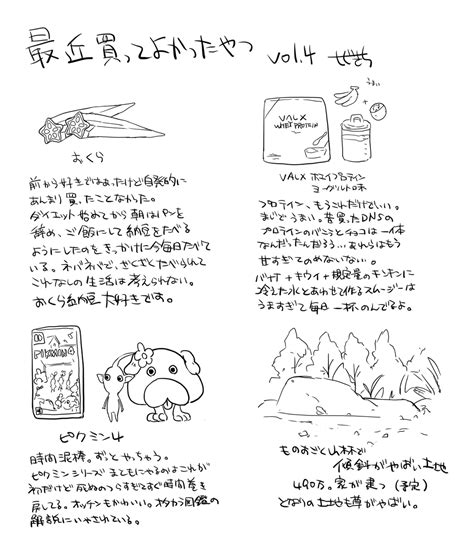 最近買ってよかったやつ vol.4
おくら
前から好きではあったけど自発的に
あんまり買ったことなかった。
ダイエット始めてから朝はパンを
辞め、ご飯にして納豆をたべる
ようにしたのをきっかけに今毎日たべて
いる。ネバネバで、ざくざくたべられて
これなしの生活は考えられない。
おくら納豆大好きです。
うまい
VALX
WHEY PROTEIN
VALX ホエイプロテイン
ヨーグルト味
プロテイン、もうこれだけでいい。
まじでうまい。昔買ったDNSの
プロテインのバニラとチョコは一体
なんだったんだろう…あれらはもう
甘すぎてのめないない。
バナナ+キウイ+規定量のキンキンに
冷えた水とあわせて作るスムージーは
うますぎて毎日一杯のんでるよ。
PIKMIN 4
ピクミン4
時間泥棒。ずっとやっちゃう。
ピクミンシリーズまともにやるのはこれが
初だけど死ぬのつらすぎてすぐ時間巻き
戻してる。オッチンもかわいい。オタカラ図鑑の
解説にいやされている。
ものすごく山林で
傾斜がやばい土地
490万。家が建つ(予定)
となりの土地も草がやばい。